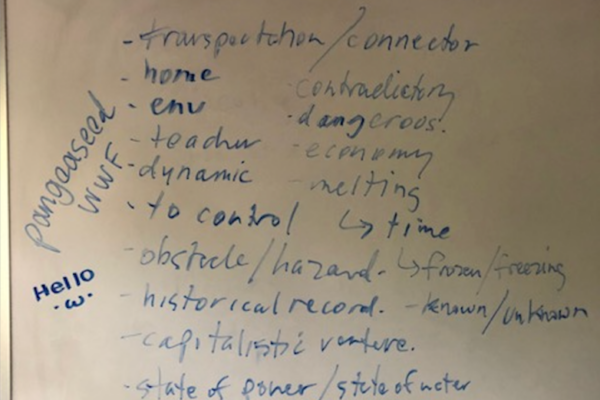 - transportation/connector
- home
- env
- teacher
- dynamic
- to control
- obstacle/hazard.
- historical record.
- capitalistic venture.
- state of power/state of water
contradictory
- dangeroos.
- economy
- melting
↳ time
↳ frozen/freezing
- known/unknown
pangeaseed
WWF
Hello
·w·